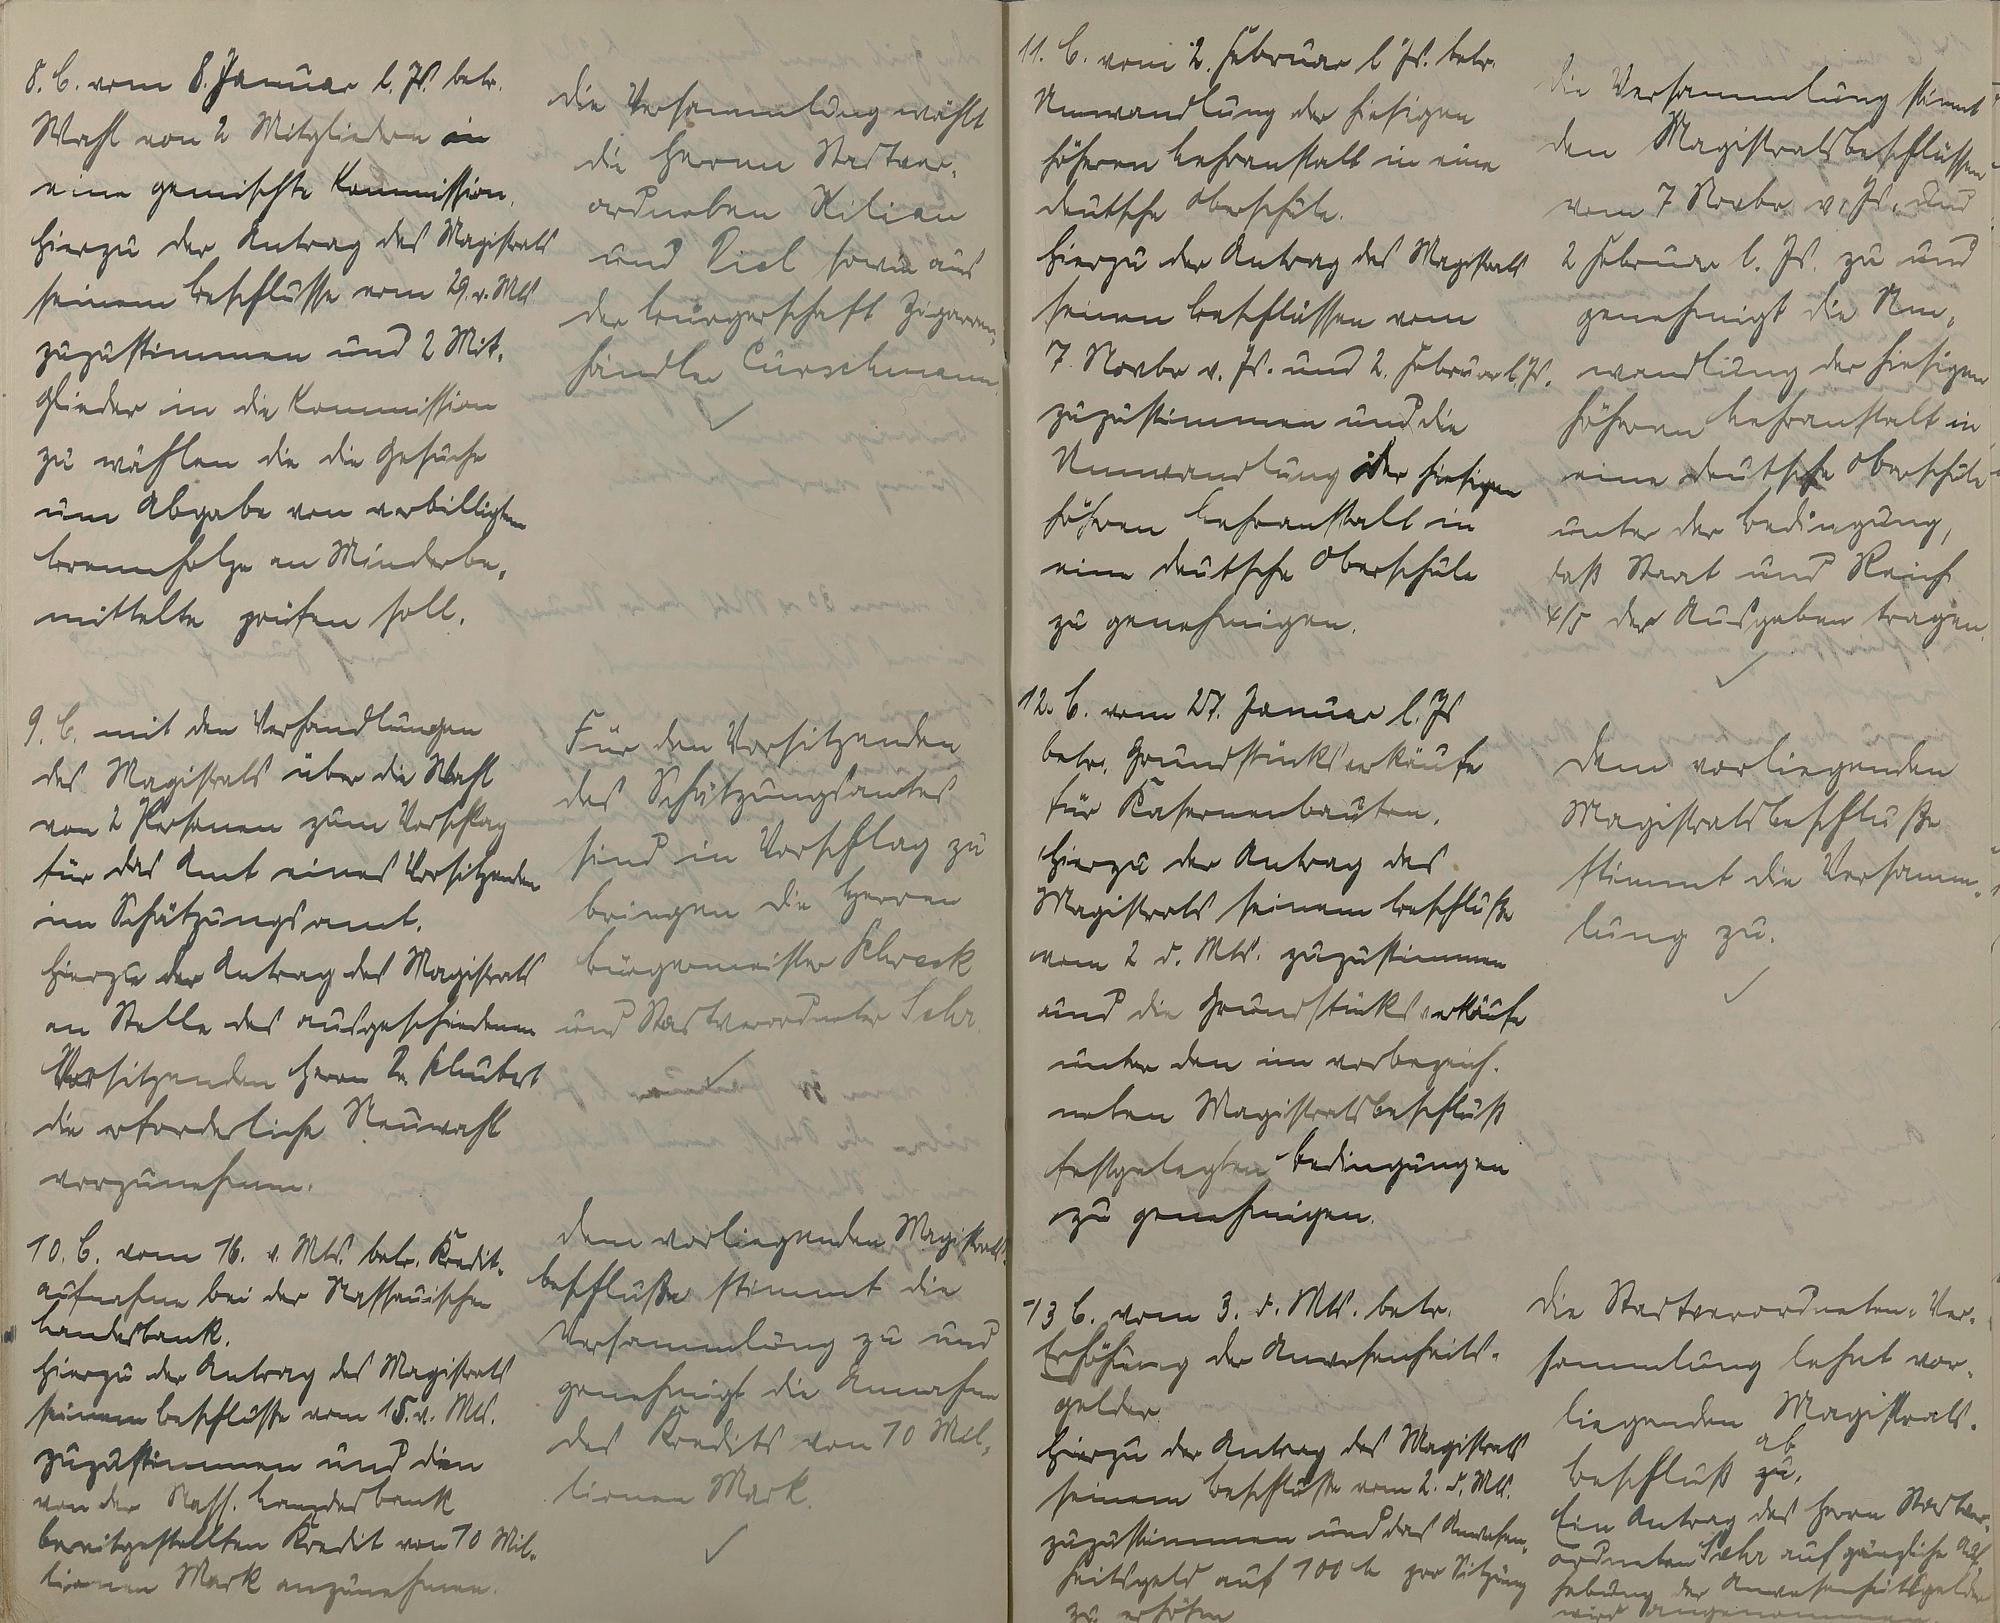 8. B. vom 8. Januar l. Js. betr.
Wahl von 2 Mitgliedern in
eine gemischte Kommission.
Hierzu der Antrag des Magistrats
seinem Beschlusse vom 29. v. Mts
zuzustimmen und 2 Mit-
glieder in die Kommission
zu wählen die die Gesuche
um Abgabe von verbilligtem
Brennholze an Minderbe-
mittelte prüfen soll.
Die Versammlung wählt
die Herren Stadtver-
ordneten Kilian
und Diel sowie aus
der Bürgerschaft Zigarren-
händler Curschmann
9. B. mit den Verhandlungen
des Magistrats über die Wahl
von 2 Personen zum Vorschlag
für das Amt eines Vorsitzenden
im Schätzungsamt.
Hierzu der Antrag des Magistrats
an Stelle des ausgeschiedenen
Vorsitzenden Herrn Dr. Schubert
die erforderliche Neuwahl
vorzunehmen.
Für den Vorsitzenden
des Schätzungsamtes
sind in Vorschlag zu
bringen die Herren
Bürgermeister Schreck
und Stadtverordneter Sehr.
10. B. vom 16. v. Mts. betr. Kredit-
aufnahme bei der Nassauischen
Landesbank.
Hierzu der Antrag des Magistrats
seinem Beschlusse vom 15. v. Mts.
zuzustimmen und den
von der Nass. Landesbank
bereitgestellten Kredit von 10 Mil-
lionen Mark anzunehmen.
Dem vorliegenden Magistrats-
beschluße stimmt die
Versammlung zu und
genehmigt die Annahme
des Kredits von 10 Mil-
lionen Mark.
11. B. vom 2. Februar l Js. betr.
Umwandlung der hiesigen
höheren Lehranstalt in eine
deutsche Oberschule.
Hierzu der Antrag des Magistrats
seinen Beschlüssen vom
7. Novbr v. Js. und 2. Februar l. Js.
zuzustimmen und die
Umwandlung der hiesigen
höheren Lehranstalt in
eine deutsche Oberschule
zu genehmigen.
Die Versammlung stimmt
den Magistratsbeschlüssen
vom 7 Novbr v. Js. und
2 Februar l. Js. zu und
genehmigt die Um-
wandlung der hiesigen
höheren Lehranstalt in
eine deutsche Oberschule
unter der Bedingung,
daß Staat und Reich
4/5 der Ausgaben tragen.
12. B. vom 27. Januar l. Js
betr. Grundstücksverkäufe
für Kasernenbauten.
Hierzu der Antrag des
Magistrats seinem Beschluße
vom 2 d. Mts. zuzustimmen
und die Grundstücksverkäufe
unter den im vorbezeich-
neten Magistratsbeschluß
festgelegten Bedingungen
zu genehmigen.
Dem vorliegenden
Magistratsbeschluße
stimmt die Versamm-
lung zu.
13 B. vom 3. d. Mts. betr.
Erhöhung der Anwesenheits-
gelder
Hierzu der Antrag des Magistrats
seinem Beschluße vom 2. d. Mts.
zuzustimmen und das Anwesen-
heitsgeld auf 100 M pro Sitzung
zu erhöhen
Die Stadtverordneten-Ver-
sammlung lehnt vor-
liegenden Magistrats-
beschluß zu. ab
Ein Antrag des Herrn Stadtver-
ordneten Sehr auf gänzliche Auf-
hebung der Anwesenheitsgelder
wird angenommen